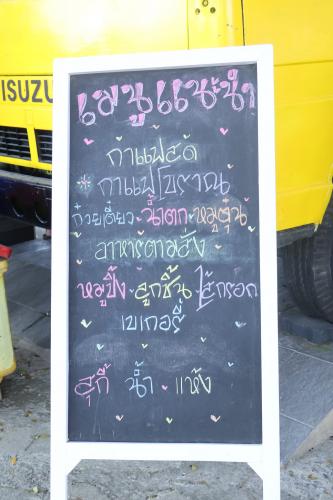 ISUZU
เมนูแนะนำ
กาแฟสด
* กาแฟโบราณ
ก๋วยเตี๋ยว • น้ำตก • หมูตุ๋น
อาหารตามสั่ง
หมูปิ้ง • ลูกชิ้น • ไส้กรอก
เบเกอรี่
สุกี้ น้ำ • แห้ง